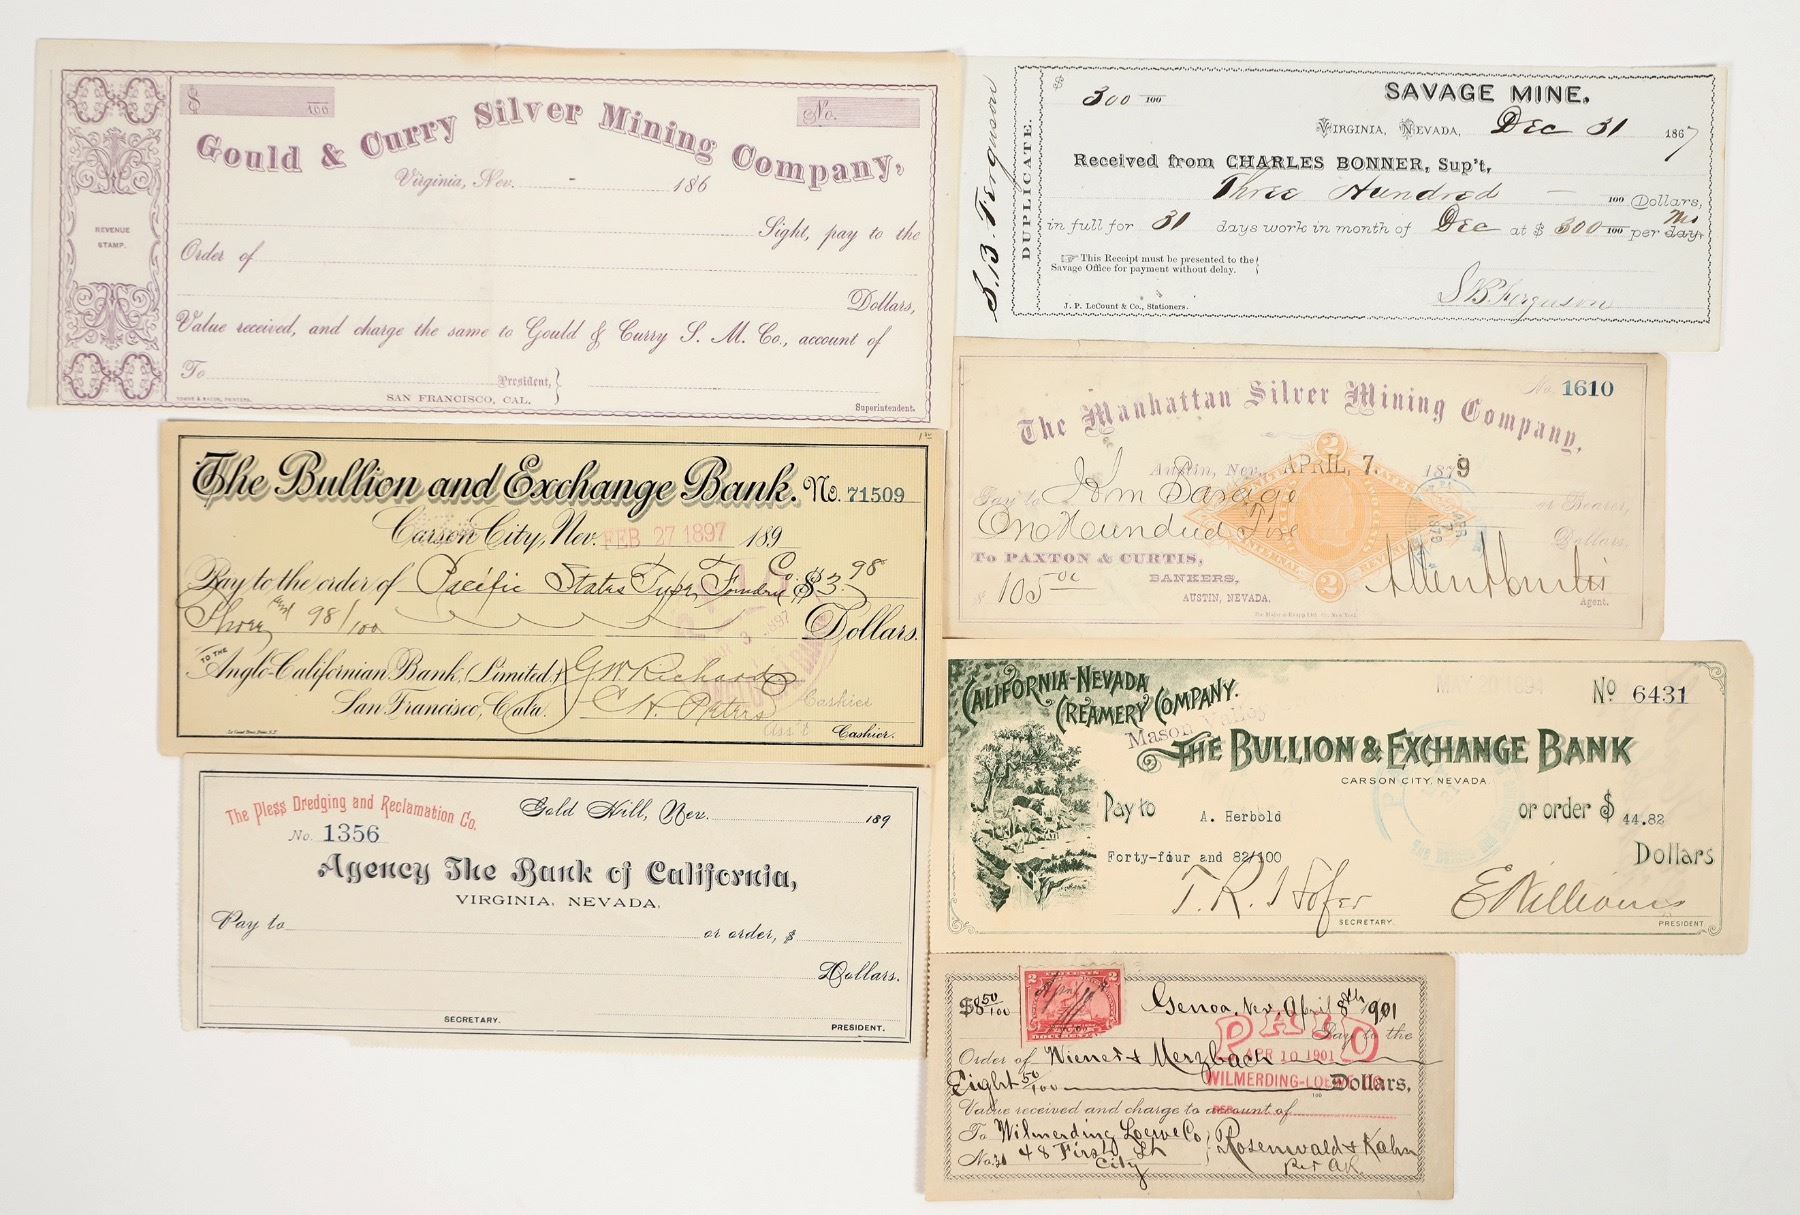 $ /100 No.
Gould & Curry Silver Mining Company,
Virginia, Nev. 186
REVENUE
STAMP.
Sight, pay to the
Order of
Dollars,
Value received, and charge the same to Gould & Curry S. M. Co., account of
To President,
SAN FRANCISCO, CAL.
TOWNE & BACON, PRINTERS.
Superintendent.
S. B. Ferguson
DUPLICATE.
$ 300 /100
SAVAGE MINE.
VIRGINIA, NEVADA, Dec 31 1867
Received from CHARLES BONNER, Sup't,
Three Hundred — /100 Dollars,
in full for 31 days work in month of Dec at $ 300 /100 per day. Mo
This Receipt must be presented to the
Savage Office for payment without delay.
J. P. LeCount & Co., Stationers.
S B Ferguson
The Bullion and Exchange Bank. No. 71509
Carson City, Nev. FEB 27 1897 189
Pay to the order of Pacific States Type Foundry Co. $3.98
Three and 98/100 Dollars.
TO THE
Anglo-Californian Bank, (Limited,)
San Francisco, Cala.
G W Richards
Cashier
C H Peters
Ass't Cashier.
No. 1610
The Manhattan Silver Mining Company,
Austin, Nev., APRIL 7. 1879
Pay to Wm Savage or Bearer,
One Hundred Five Dollars,
To PAXTON & CURTIS,
BANKERS,
AUSTIN, NEVADA.
$ 105 00
Allen A Curtis
Agent.
2
2
The Pless Dredging and Reclamation Co.
No. 1356
Gold Hill, Nev. 189
Agency The Bank of California,
VIRGINIA, NEVADA,
Pay to or order, $
Dollars.
SECRETARY.
PRESIDENT.
CALIFORNIA-NEVADA
CREAMERY COMPANY.
Mason Valley
MAY 20 1894
No 6431
THE BULLION & EXCHANGE BANK
CARSON CITY, NEVADA
Pay to A. Herbold or order $ 44.82
Forty-four and 82/100 Dollars
SECRETARY.
E Williams
PRESIDENT.
$8 50/100
2 2
DOCUMENTARY
Genoa, Nev. April 8th 1901
Pay to the
Order of Wiener & Merzbach
Eight 50/100 Dollars,
PAID
APR 10 1901
WILMERDING-LOEWE CO.
Value received and charge to account of
To Wilmerding Loewe Co
No. 48 First St
City
Rosenwald & Kahn
per AK